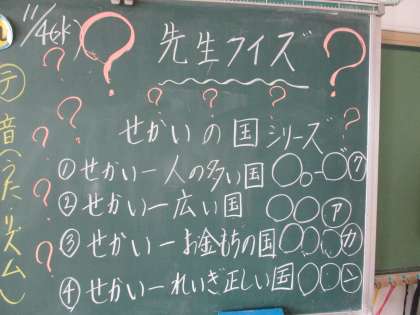 11/4(水)
先生クイズ
せかいの国シリーズ
①せかい一人の多い国 ○○-○ク
②せかい一広い国 ○○ア
③せかい一お金もちの国○○○カ
④せかい一れいぎ正しい国○○ン
テ
音(うた・リズム)